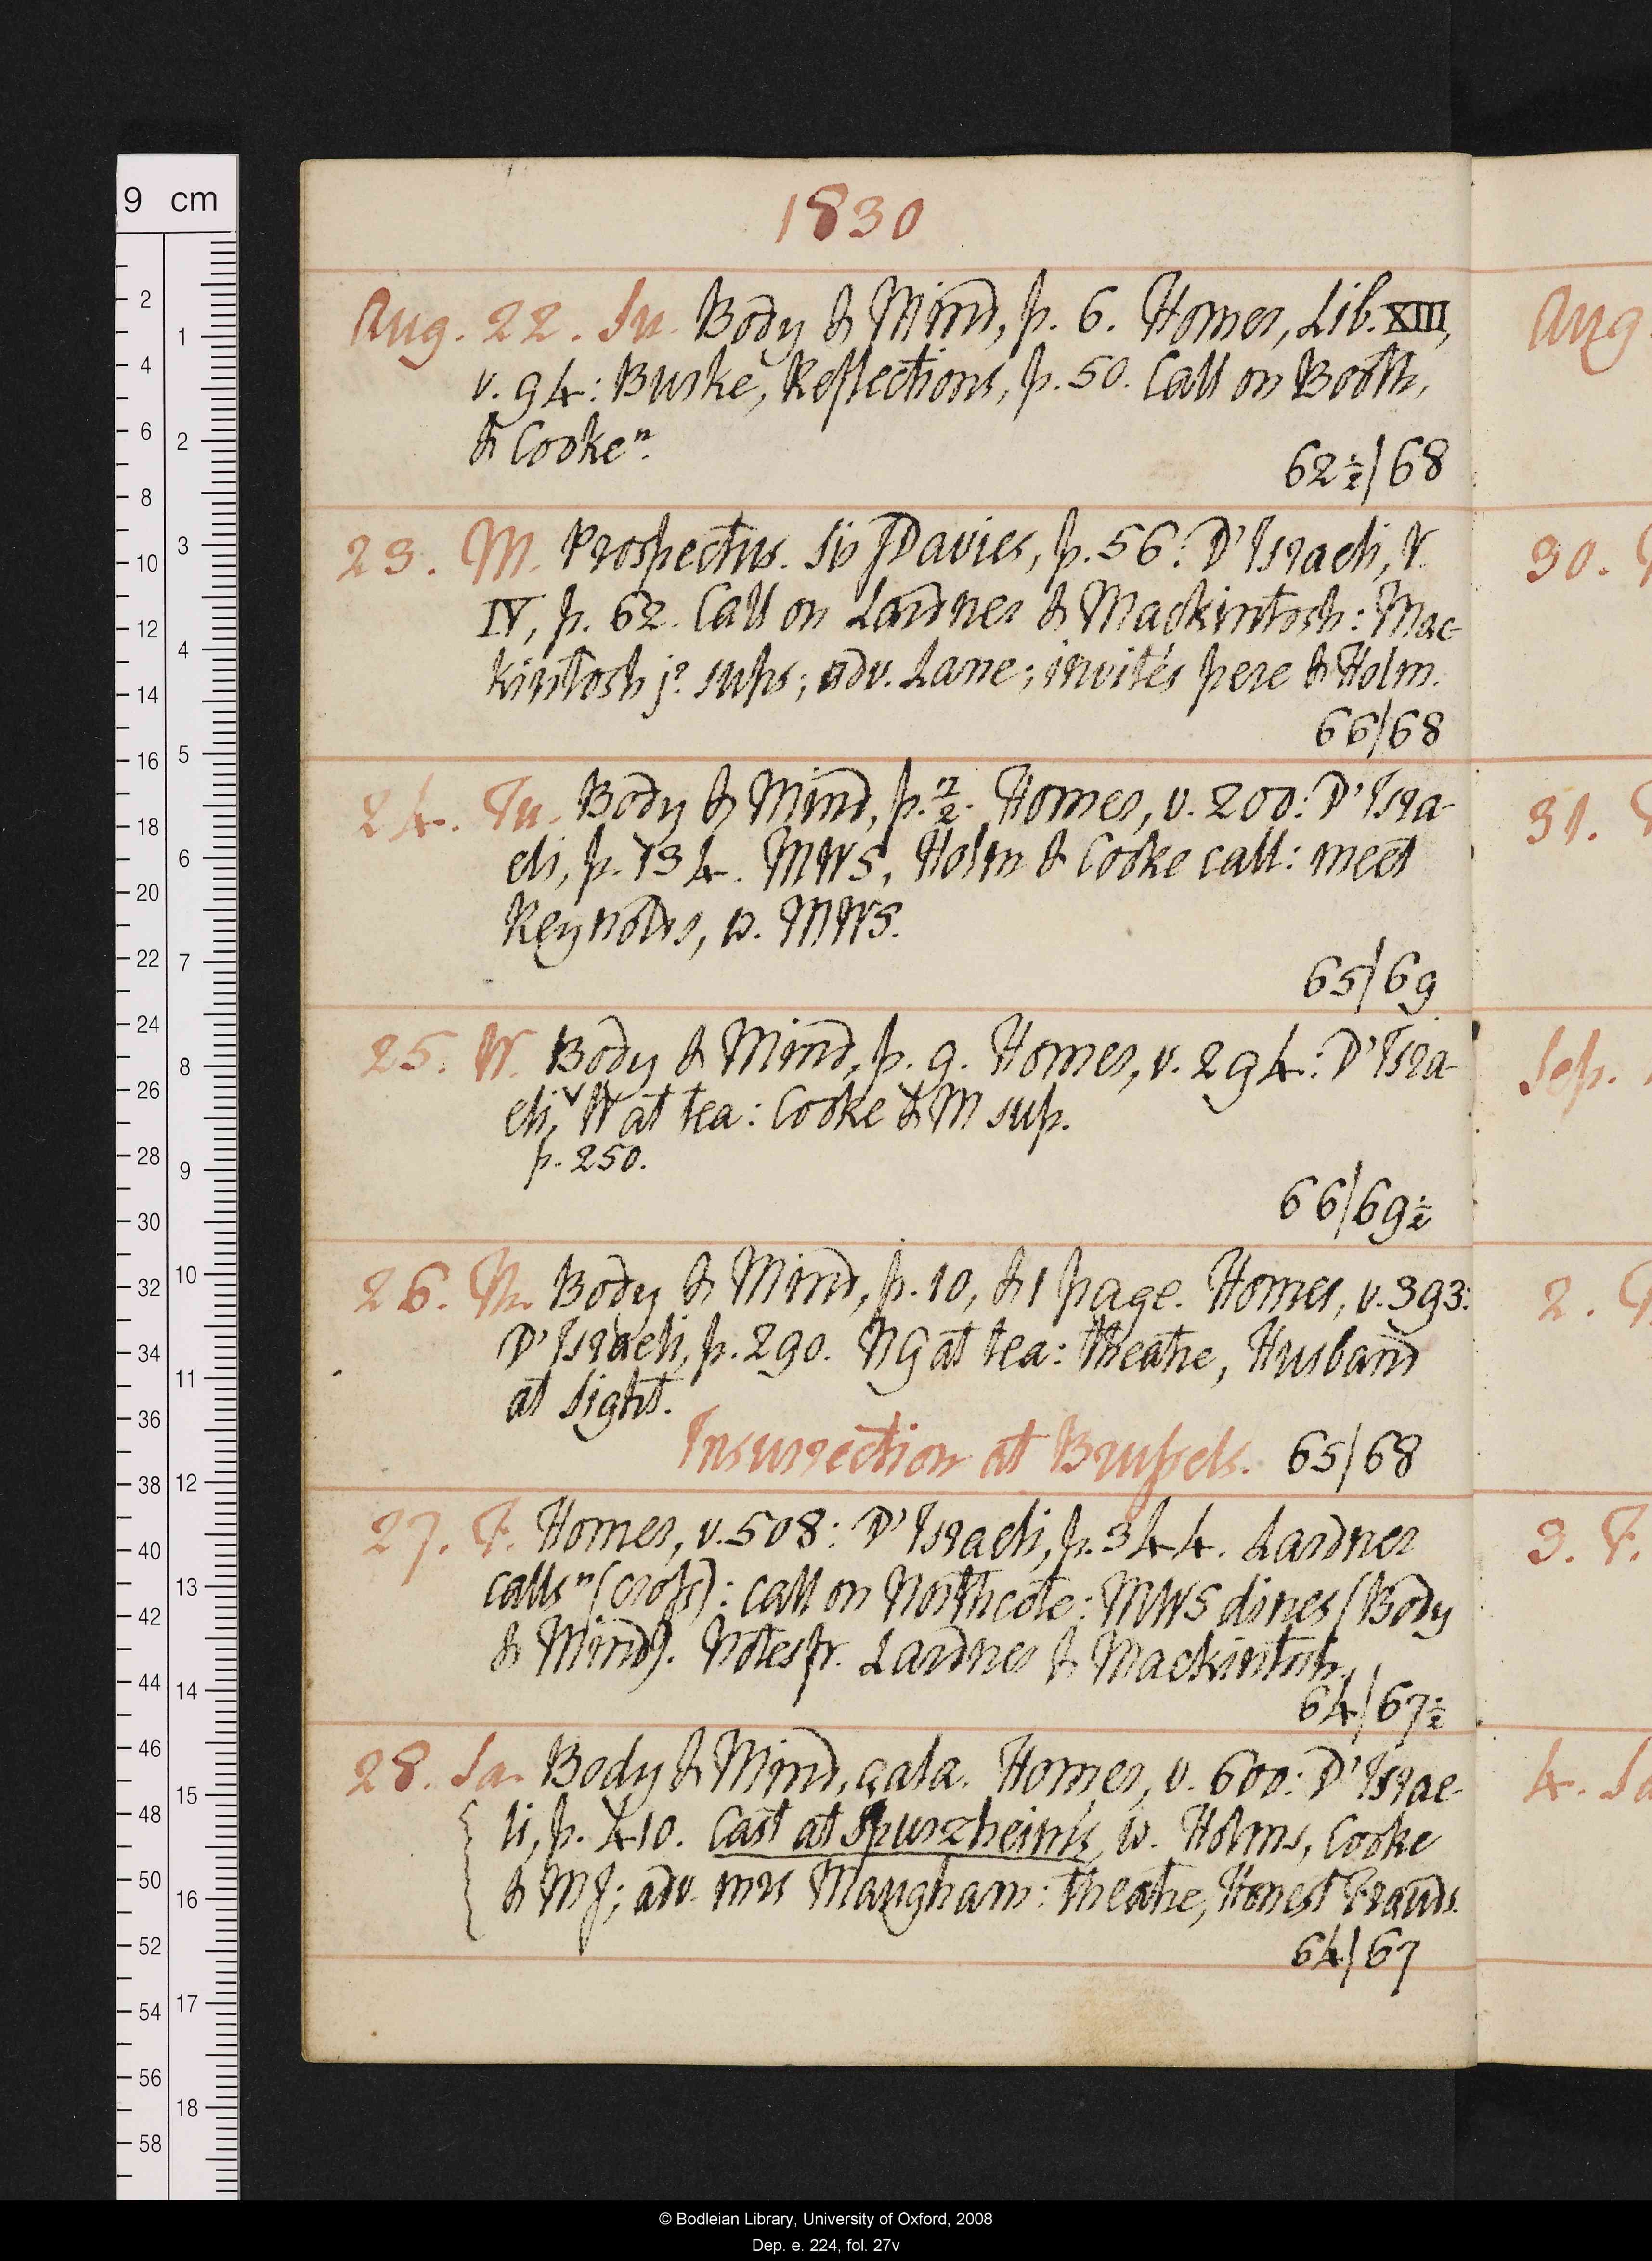 9 cm
1830
Aug. 22. Su. Body & Mind, p. 6. Homer, Lib. XIII,
v. 94: Burke, Reflections, p. 50. Call on Booth,
& Cooke n.
62½/68
23. M. Prospectus. Sir J Davies, p. 56: D'Israeli, V.
IV, p. 62. Call on Lardner & Mackintosh: Mac-
kintosh jr. sups; adv. Lane; invités pere & Holm.
66/68
24. Tu. Body & Mind, p. 7/2. Homer, v. 200: D'Isra-
eli, p. 134. MWS, Holm & Cooke call: meet
Reynolds, w. MWS.
65/69
25. W. Body & Mind, p. 9. Homer, v. 294: D'Isra-
eli, W at tea: Cooke & M sup.
p. 250.
66/69½
26. Th. Body & Mind, p. 10, & 1 page. Homer, v. 393:
D'Israeli, p. 290. NG at tea: theatre, Husband
at Sight.
Insurrection at Brussels. 65/68
27. F. Homer, v. 508: D'Israeli, p. 344. Lardner
calls n (cross): call on Northcote: MWS dines (Body
& Mind). Notes fr. Lardner & Mackintosh.
64/67½
28. Sa. Body & Mind, gala. Homer, v. 600: D'Israe-
li, p. 410. Cast at Spurzheim's, w. Holms, Cooke
& MJ; adv. mrs Maugham: theatre, Honest Frauds.
64/67
Aug.
30.
31.
Sep.
2.
3. F.
4. Sa
© Bodleian Library, University of Oxford, 2008
Dep. e. 224, fol. 27v